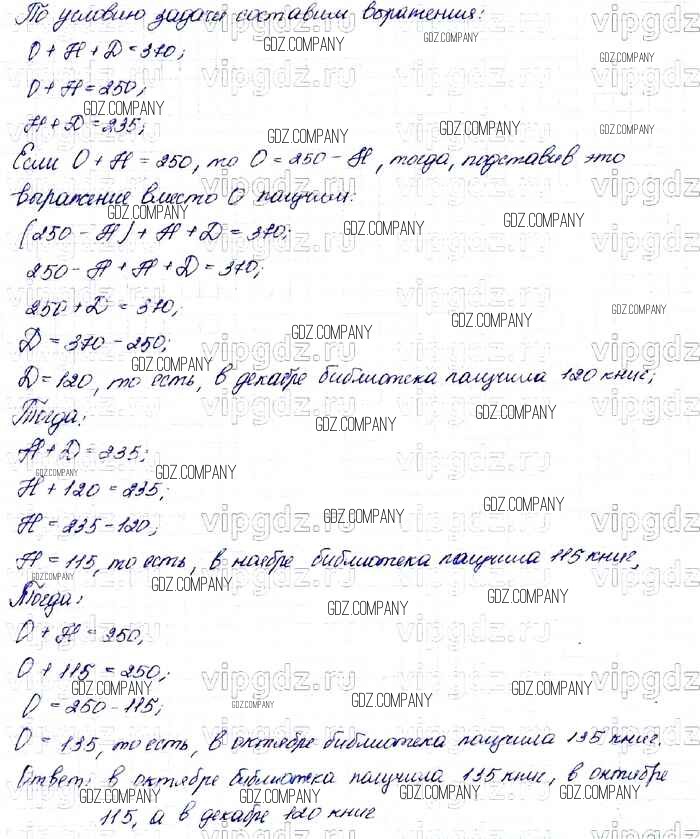 По условию задачи составим выражения:
О + Н + Д = 370;
О + Н = 250;
Н + Д = 235;
Если О + Н = 250, то О = 250 - Н, тогда, подставив это
выражение вместо О получим:
(250 - Н) + Н + Д = 370;
250 - Н + Н + Д = 370;
250 + Д = 370;
Д = 370 - 250;
Д = 120, то есть, в декабре библиотека получила 120 книг;
Тогда:
Н + Д = 235;
Н + 120 = 235;
Н = 235 - 120;
Н = 115, то есть, в ноябре библиотека получила 115 книг,
Тогда:
О + Н = 250,
О + 115 = 250;
О = 250 - 115;
О = 135, то есть, в октябре библиотека получила 135 книг.
Ответ: в октябре библиотека получила 135 книг, в октябре
115, а в декабре 120 книг
GDZ.COMPANY
vipgdz.ru